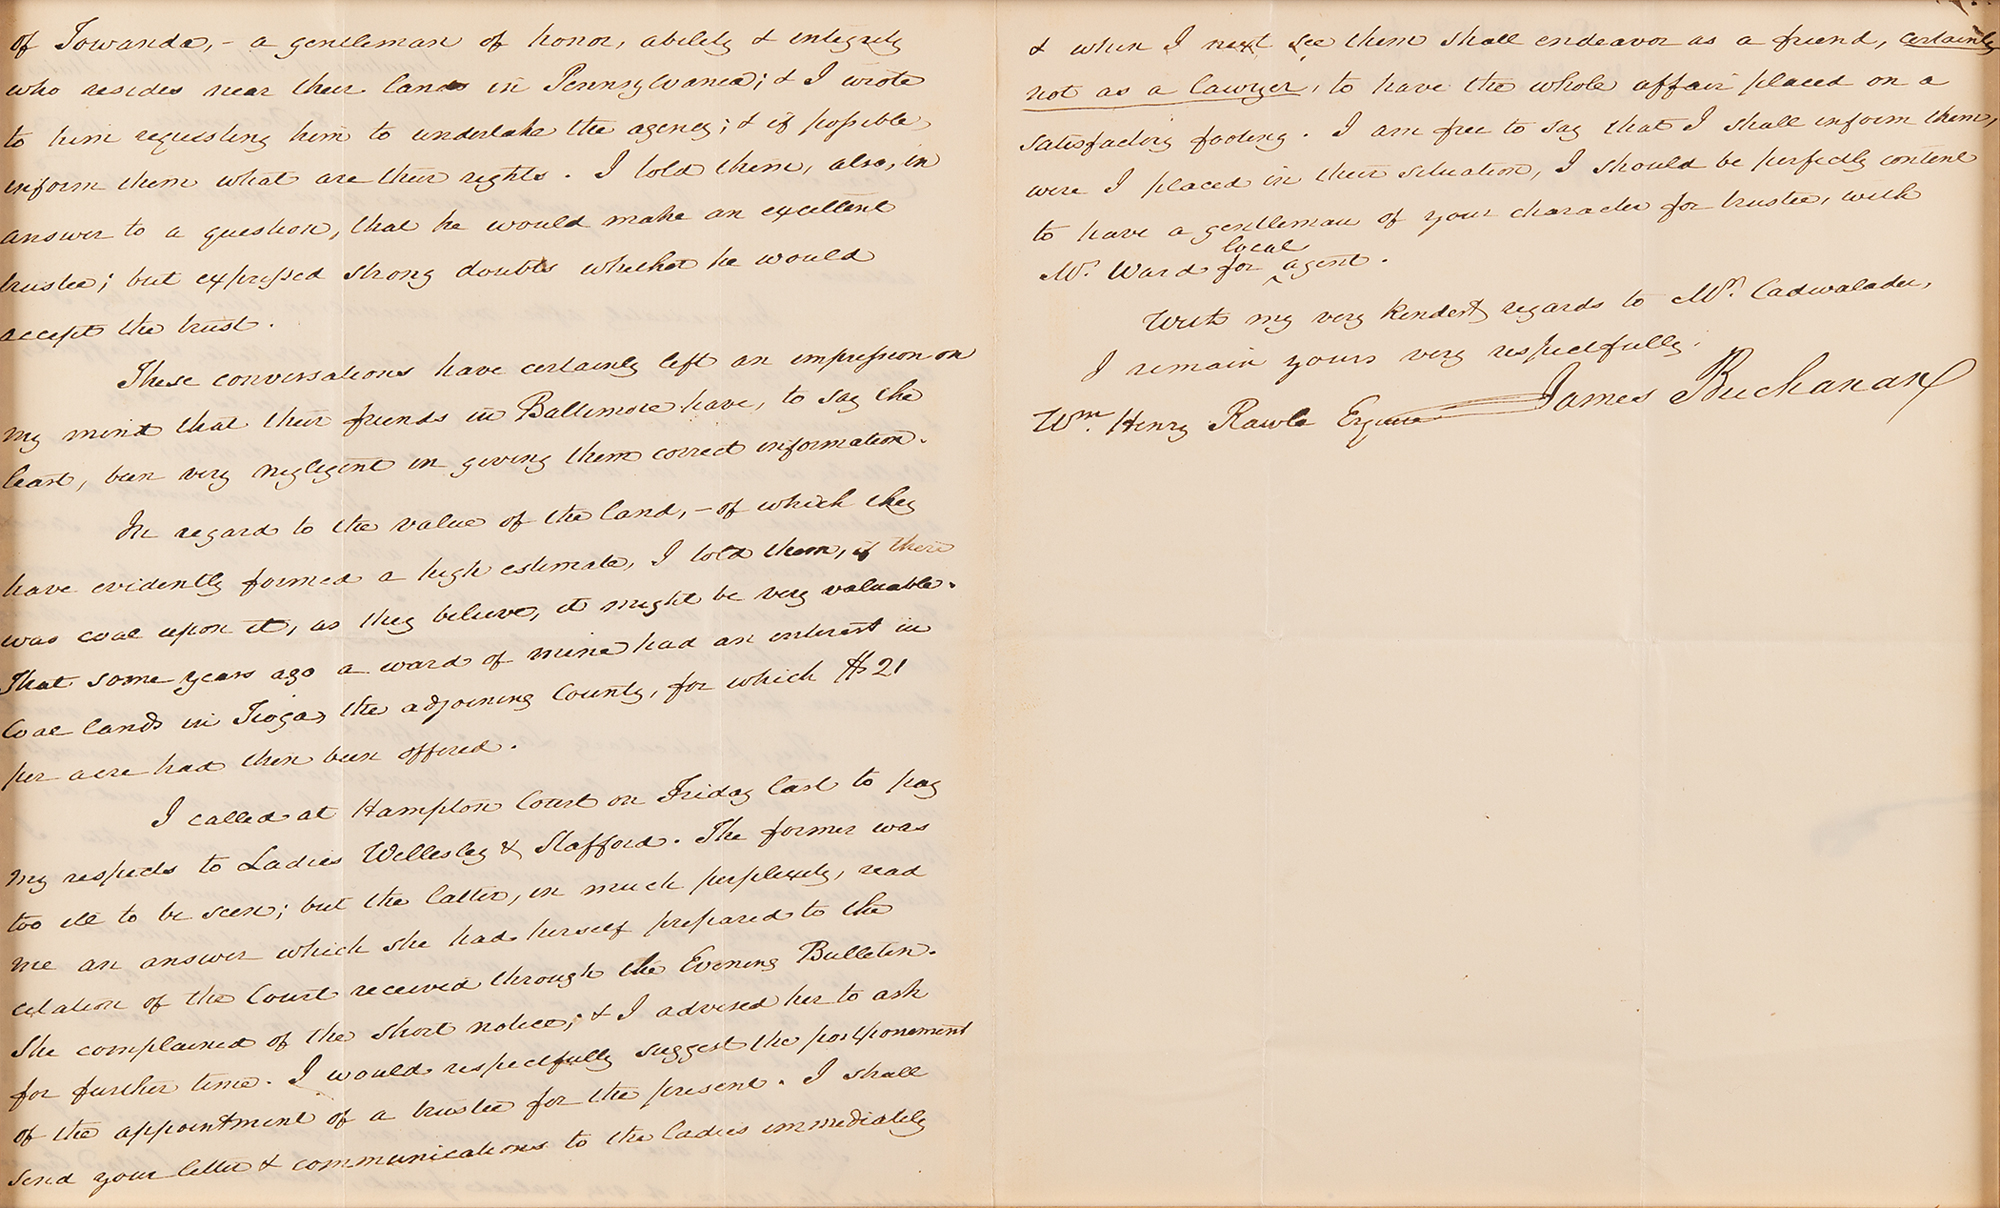 of Towanda, – a gentleman of honor, ability & integrity
who resides near their lands in Pennsylvania; & I wrote
to him requesting him to undertake the agency; & if possible,
inform them what are their rights. I told them, also, in
answer to a question, that he would make an excellent
trustee; but expressed strong doubts whether he would
accept the trust.
These conversations have certainly left an impression on
my mind that their friends in Baltimore have, to say the
least, been very negligent in giving them correct information.
In regard to the value of the land, – of which they
have evidently formed a high estimate, I told them, if there
was coal upon it, as they believe, it might be very valuable.
That some years ago a ward of mine had an interest in
Coal lands in Tioga, the adjoining County, for which $21
per acre had then been offered.
I called at Hampton Court on Friday last to pay
my respects to Ladies Wellesley & Stafford. The former was
too ill to be seen; but the latter, in much perplexity, read
me an answer which she had herself prepared to the
citation of the Court received through the Evening Bulletin.
She complained of the short notice; & I advised her to ask
for further time. I would respectfully suggest the postponement
of the appointment of a trustee for the present. I shall
send your letter & communications to the Ladies immediately
& when I next see them shall endeavor as a friend, certainly
not as a lawyer, to have the whole affair placed on a
satisfactory footing. I am free to say that I shall inform them,
were I placed in their situation, I should be perfectly content
to have a gentleman of your character for trustee, with
Mr. Ward for local agent.
With my very kindest regards to Mr. Cadwalader,
I remain yours very respectfully.
James Buchanan
Wm. Henry Rawle Esquire